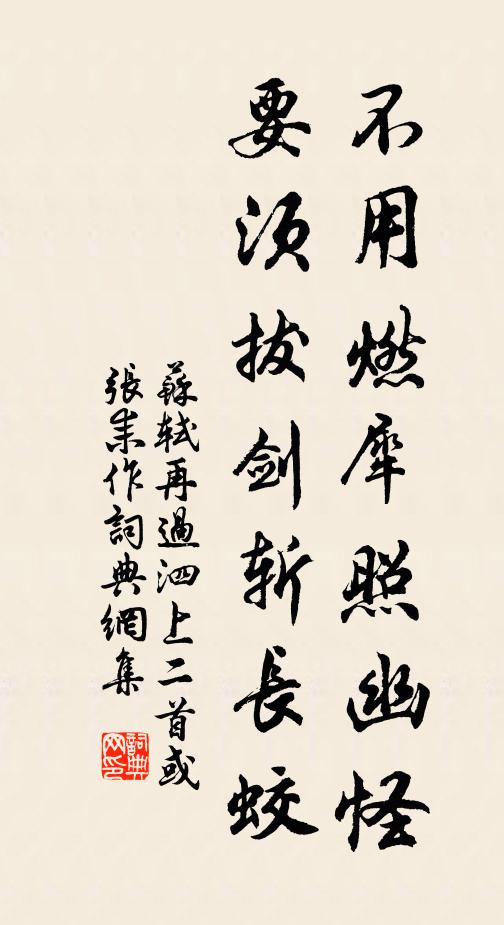 不用燃犀照幽怪
要須拔劍斬長蛟
蘇軾再過泗上二首或
張耒作詞典網集
詞典網印